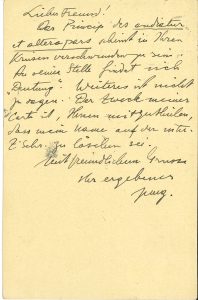 Lieber Freund!
Das Princip des audiatur
et altera pars scheint in Ihren
Kreisen verschwunden zu sein.
An seine Stelle findet sich
"Deutung". Weiteres ist nicht
zu sagen. Der Zweck meiner
Carte ist, Ihnen mitzutheilen,
dass mein Name auf der inter.
Z'schr. zu löschen sei.
Mit freundlichem Gruss
Ihr ergebener
Jung.